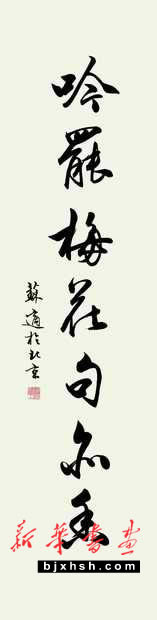 吟罷梅花句亦香
蘇適於北京
新華書畫
bjxhsh.com